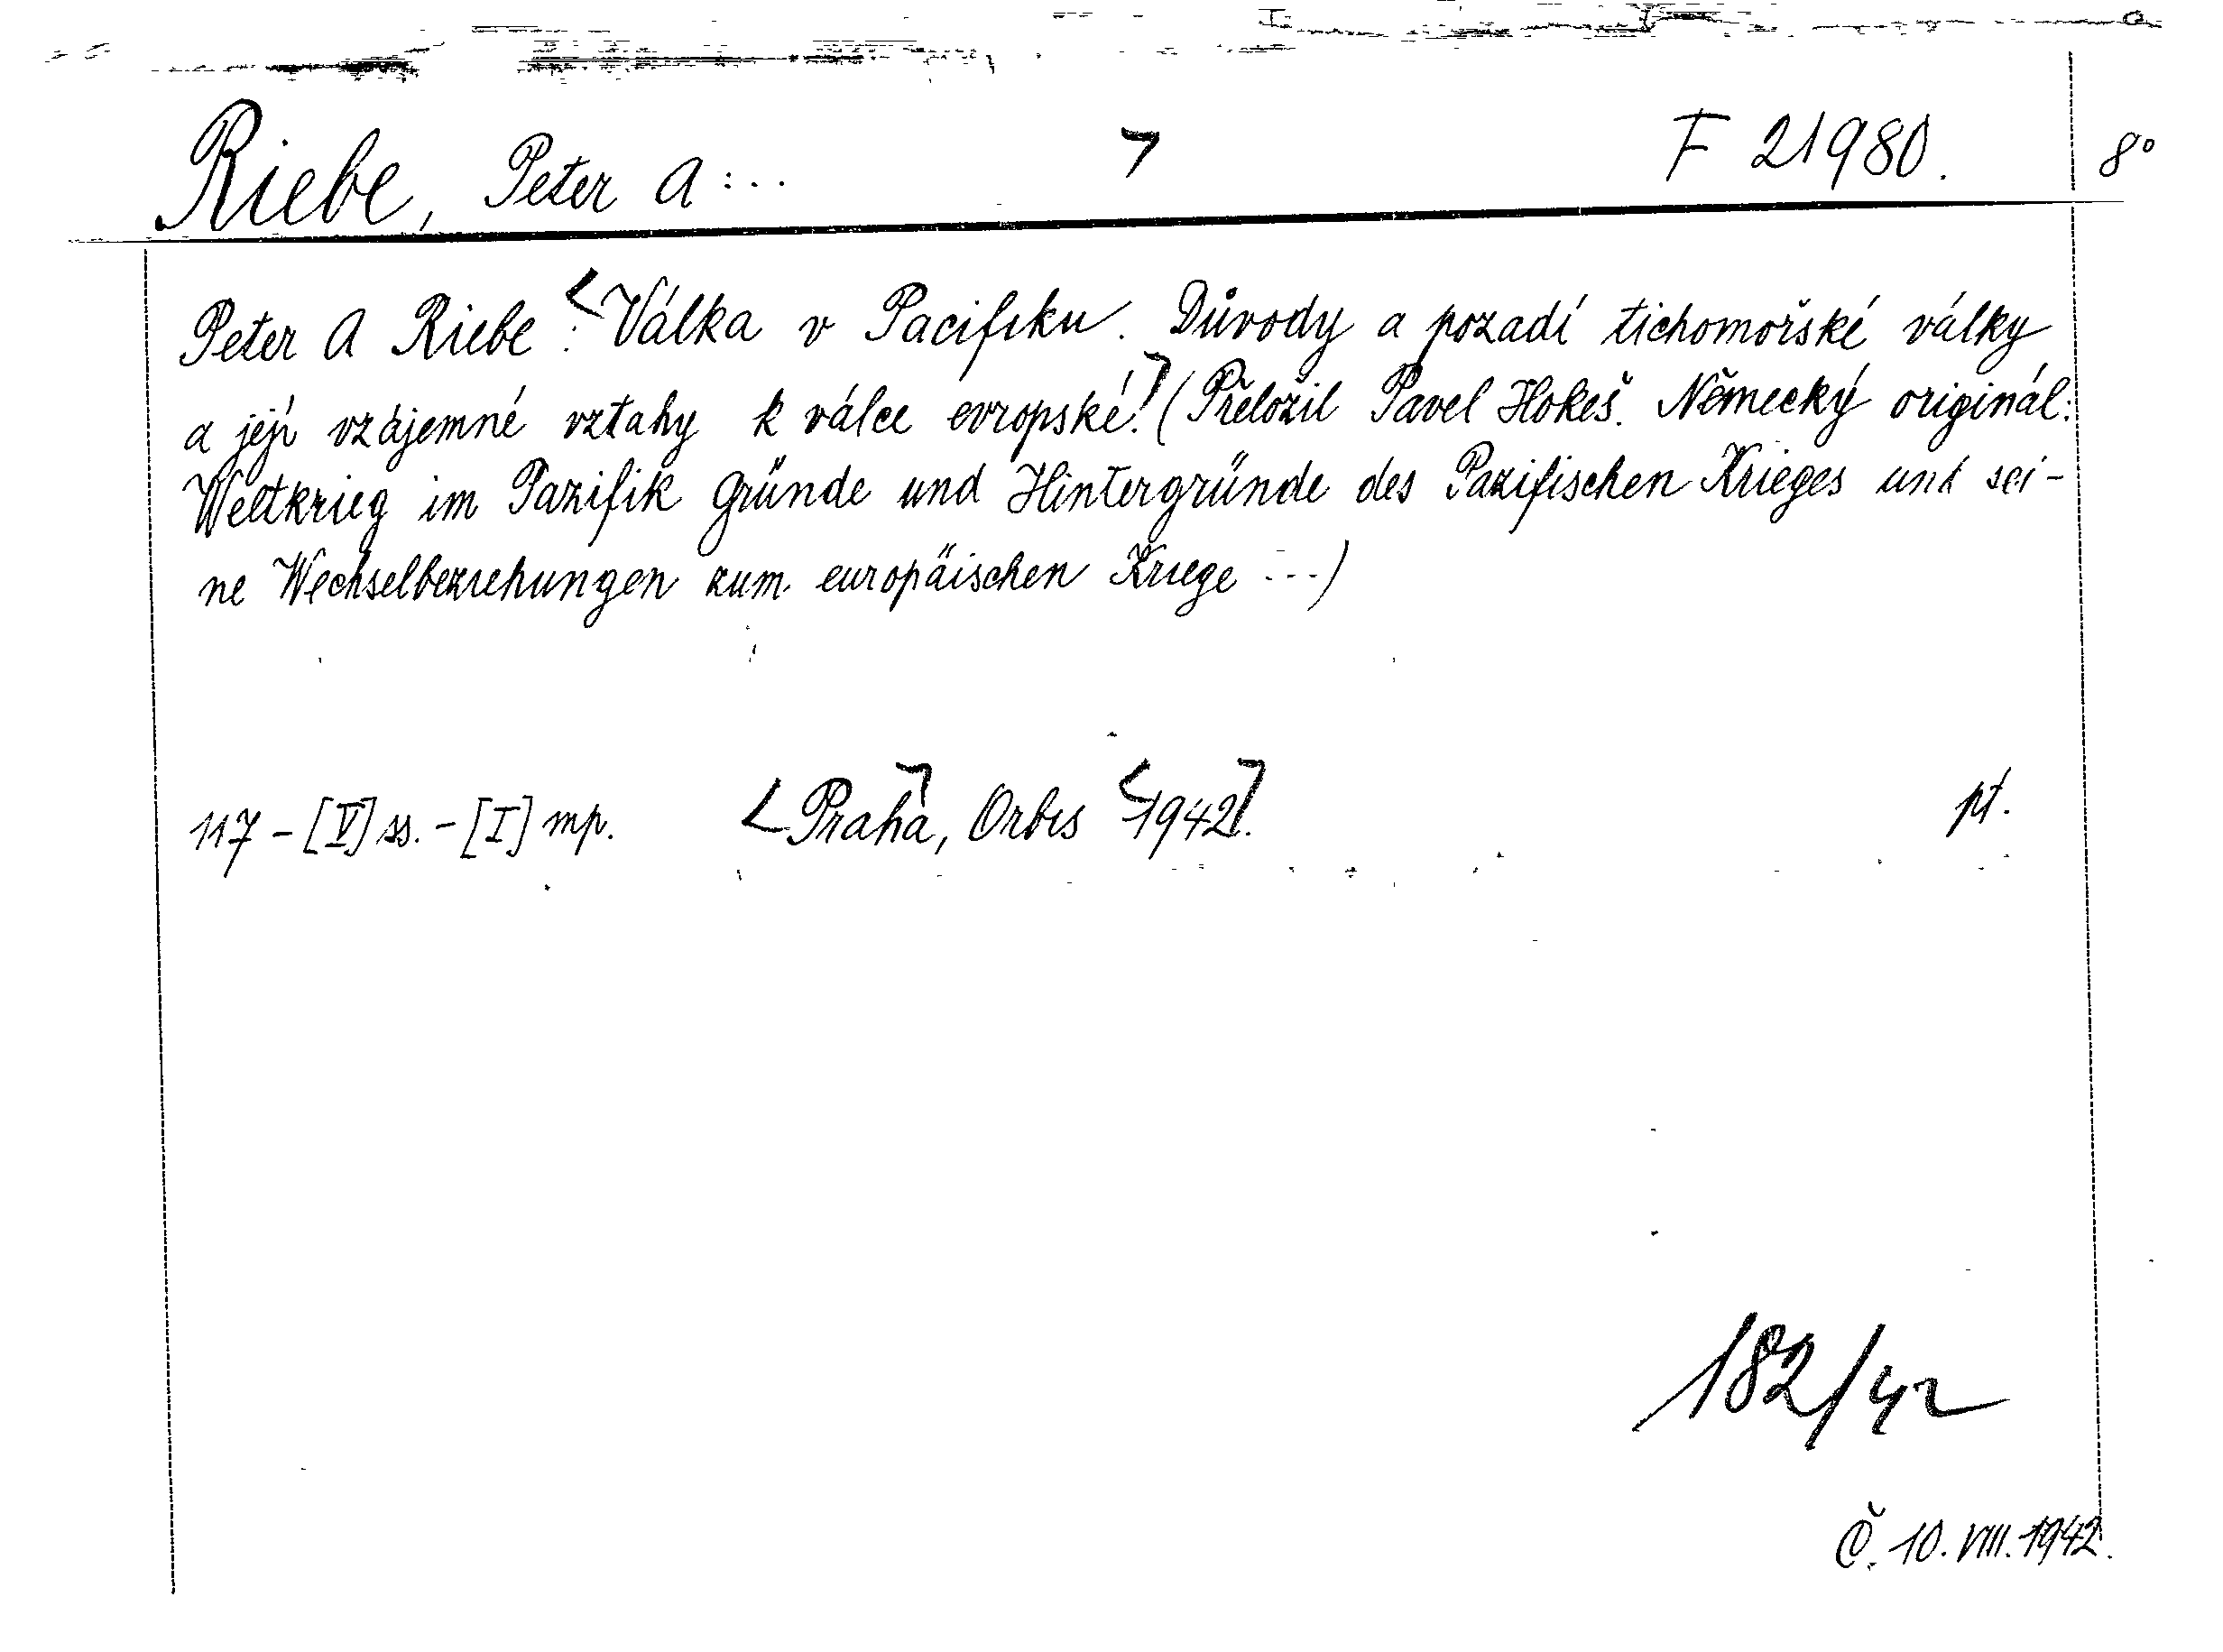 Riebe, Peter A... F 21980. 8°
Peter A Riebe: Válka v Pacifiku. Důvody a pozadí tichomořské války
a její vzájemné vztahy k válce evropské. (Přeložil Pavel Hokeš. Německý originál:
Weltkrieg im Pazifik Gründe und Hintergründe des Pazifischen Krieges und sei-
ne Wechselbeziehungen zum europäischen Kriege ...)
117 - [V] ss. - [I] mp. Praha, Orbis 1942. pt.
182/42
Č. 10. VIII. 1942.